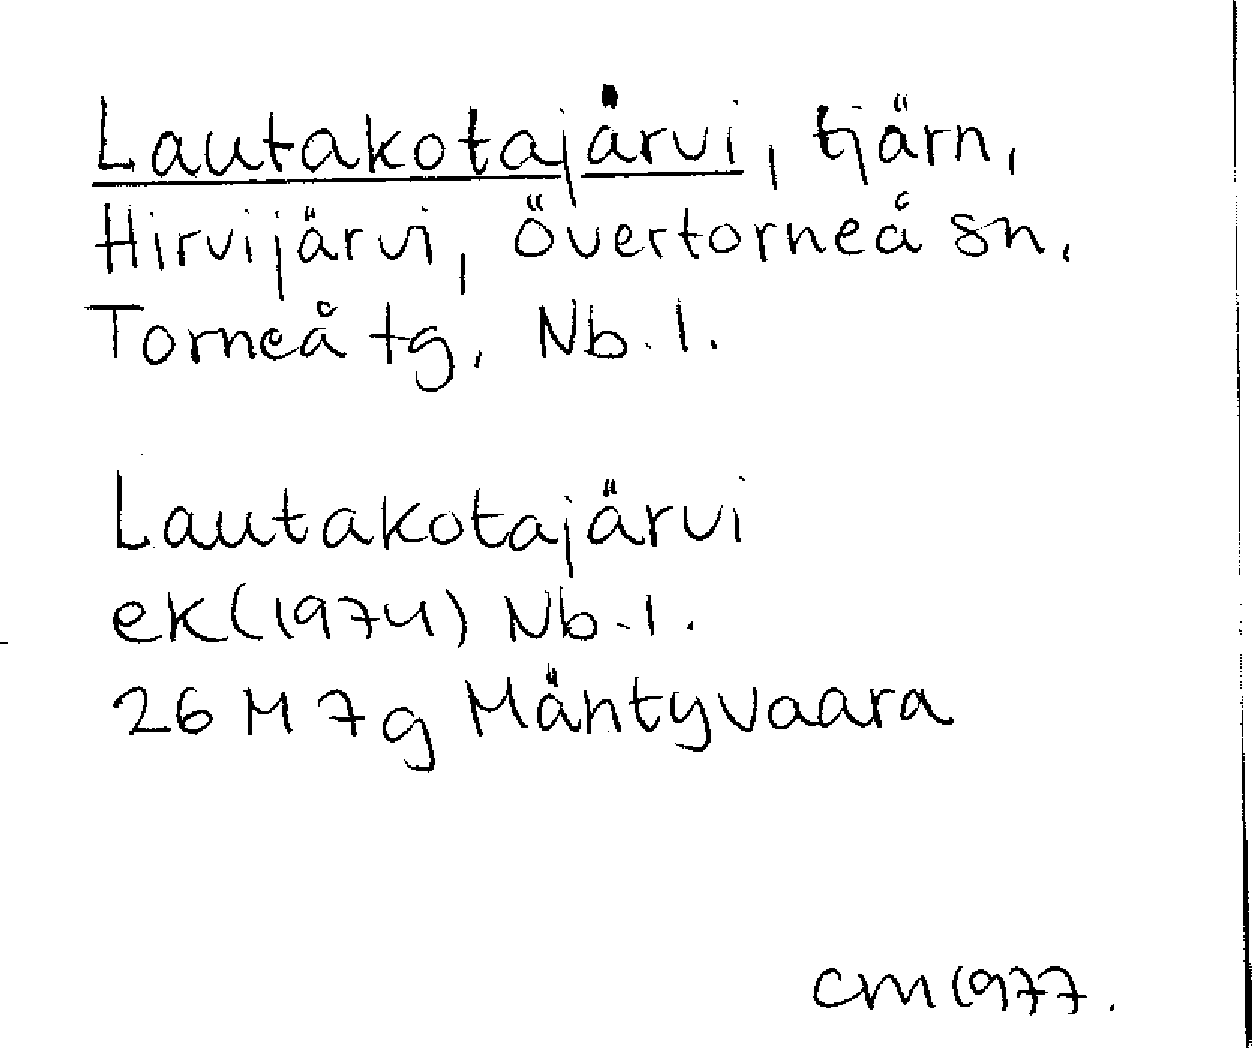 Lautakotajärvi, tjärn,
Hirvijärvi, Övertorneå sn.
Torneå tg. Nb. l.
Lautakotajärvi
ek (1974) Nb. l.
26 M 7g Mäntyvaara
CM 1977.